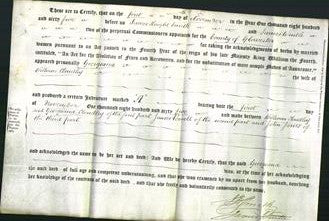 These are to certify, that on the first day of November One thousand eight hundred and
sixty five before us James Knight Smith and James Smith
two of the perpetual Commissioners appointed for the County of Gloucester
for taking the acknowledgments of deeds by married
women pursuant to an Act passed in the Fourth Year of the reign of his late Majesty King William the Fourth
intituled, "An Act for the Abolition of Fines and Recoveries, and for the substitution of more simple Modes of Assurance,"
appeared personally Georgiana the wife of
William
and produced a certain Indenture marked "A" bearing date the first day of
November One thousand eight hundred and sixty five and made between William
and Georgiana of the first part James Smith of the second part and John
of the third part
and acknowledged the same to be her act and deed: And We do hereby Certify, that the said Georgiana
was, at the time of her acknowledging
the said deed of full age and competent understanding, and that she was examined by us apart from her husband, touching
her knowledge of the contents of the said deed and that she freely and voluntarily consented to the same.